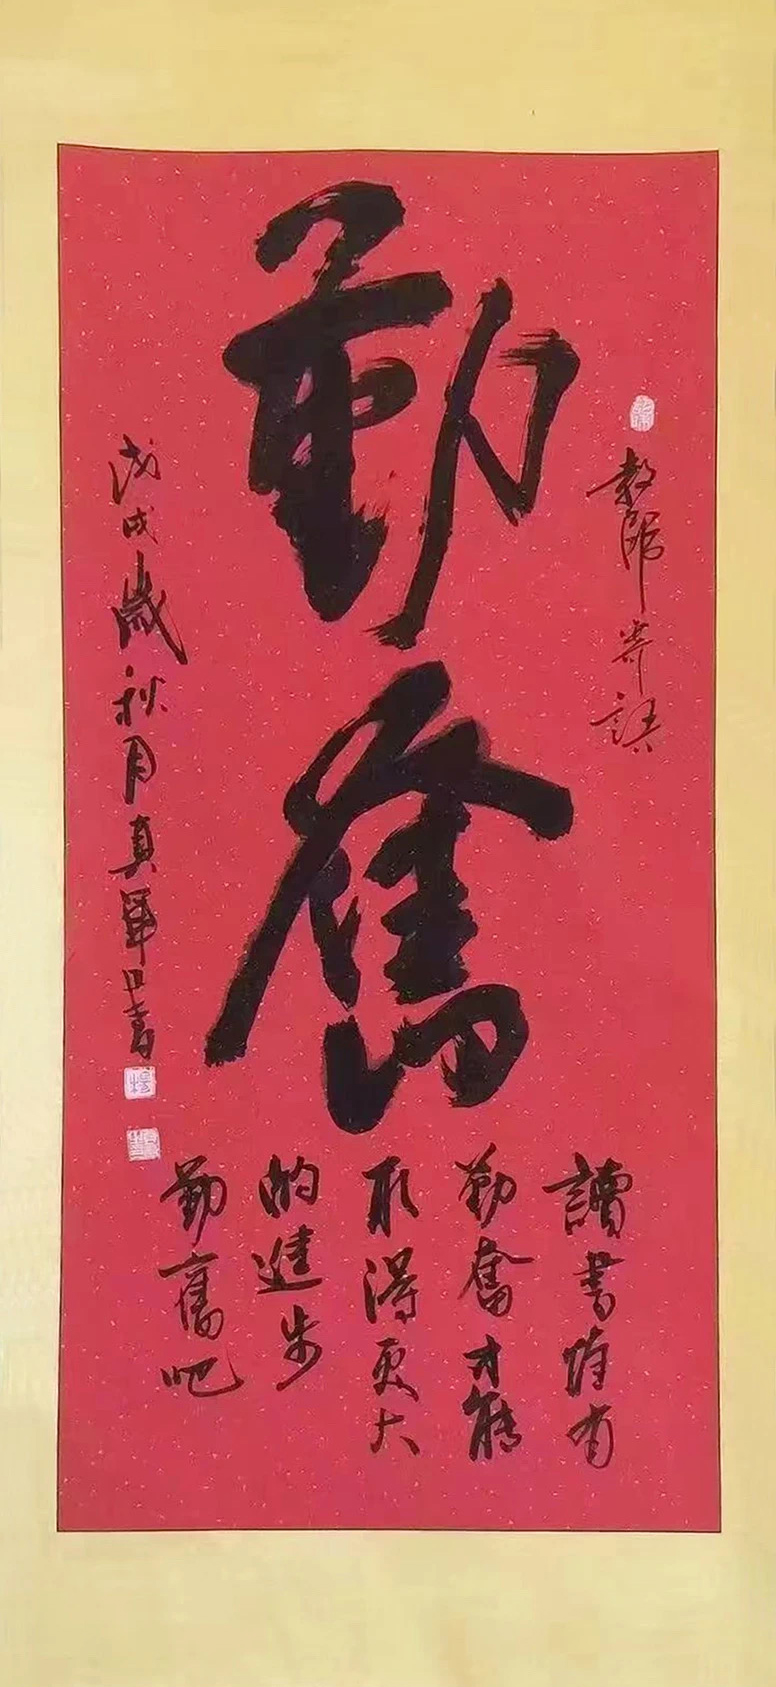 教師寄語
勤奮
讀書唯有
勤奮才能
取得更大
的進步
勤奮吧
戊戌歲秋月真軍書